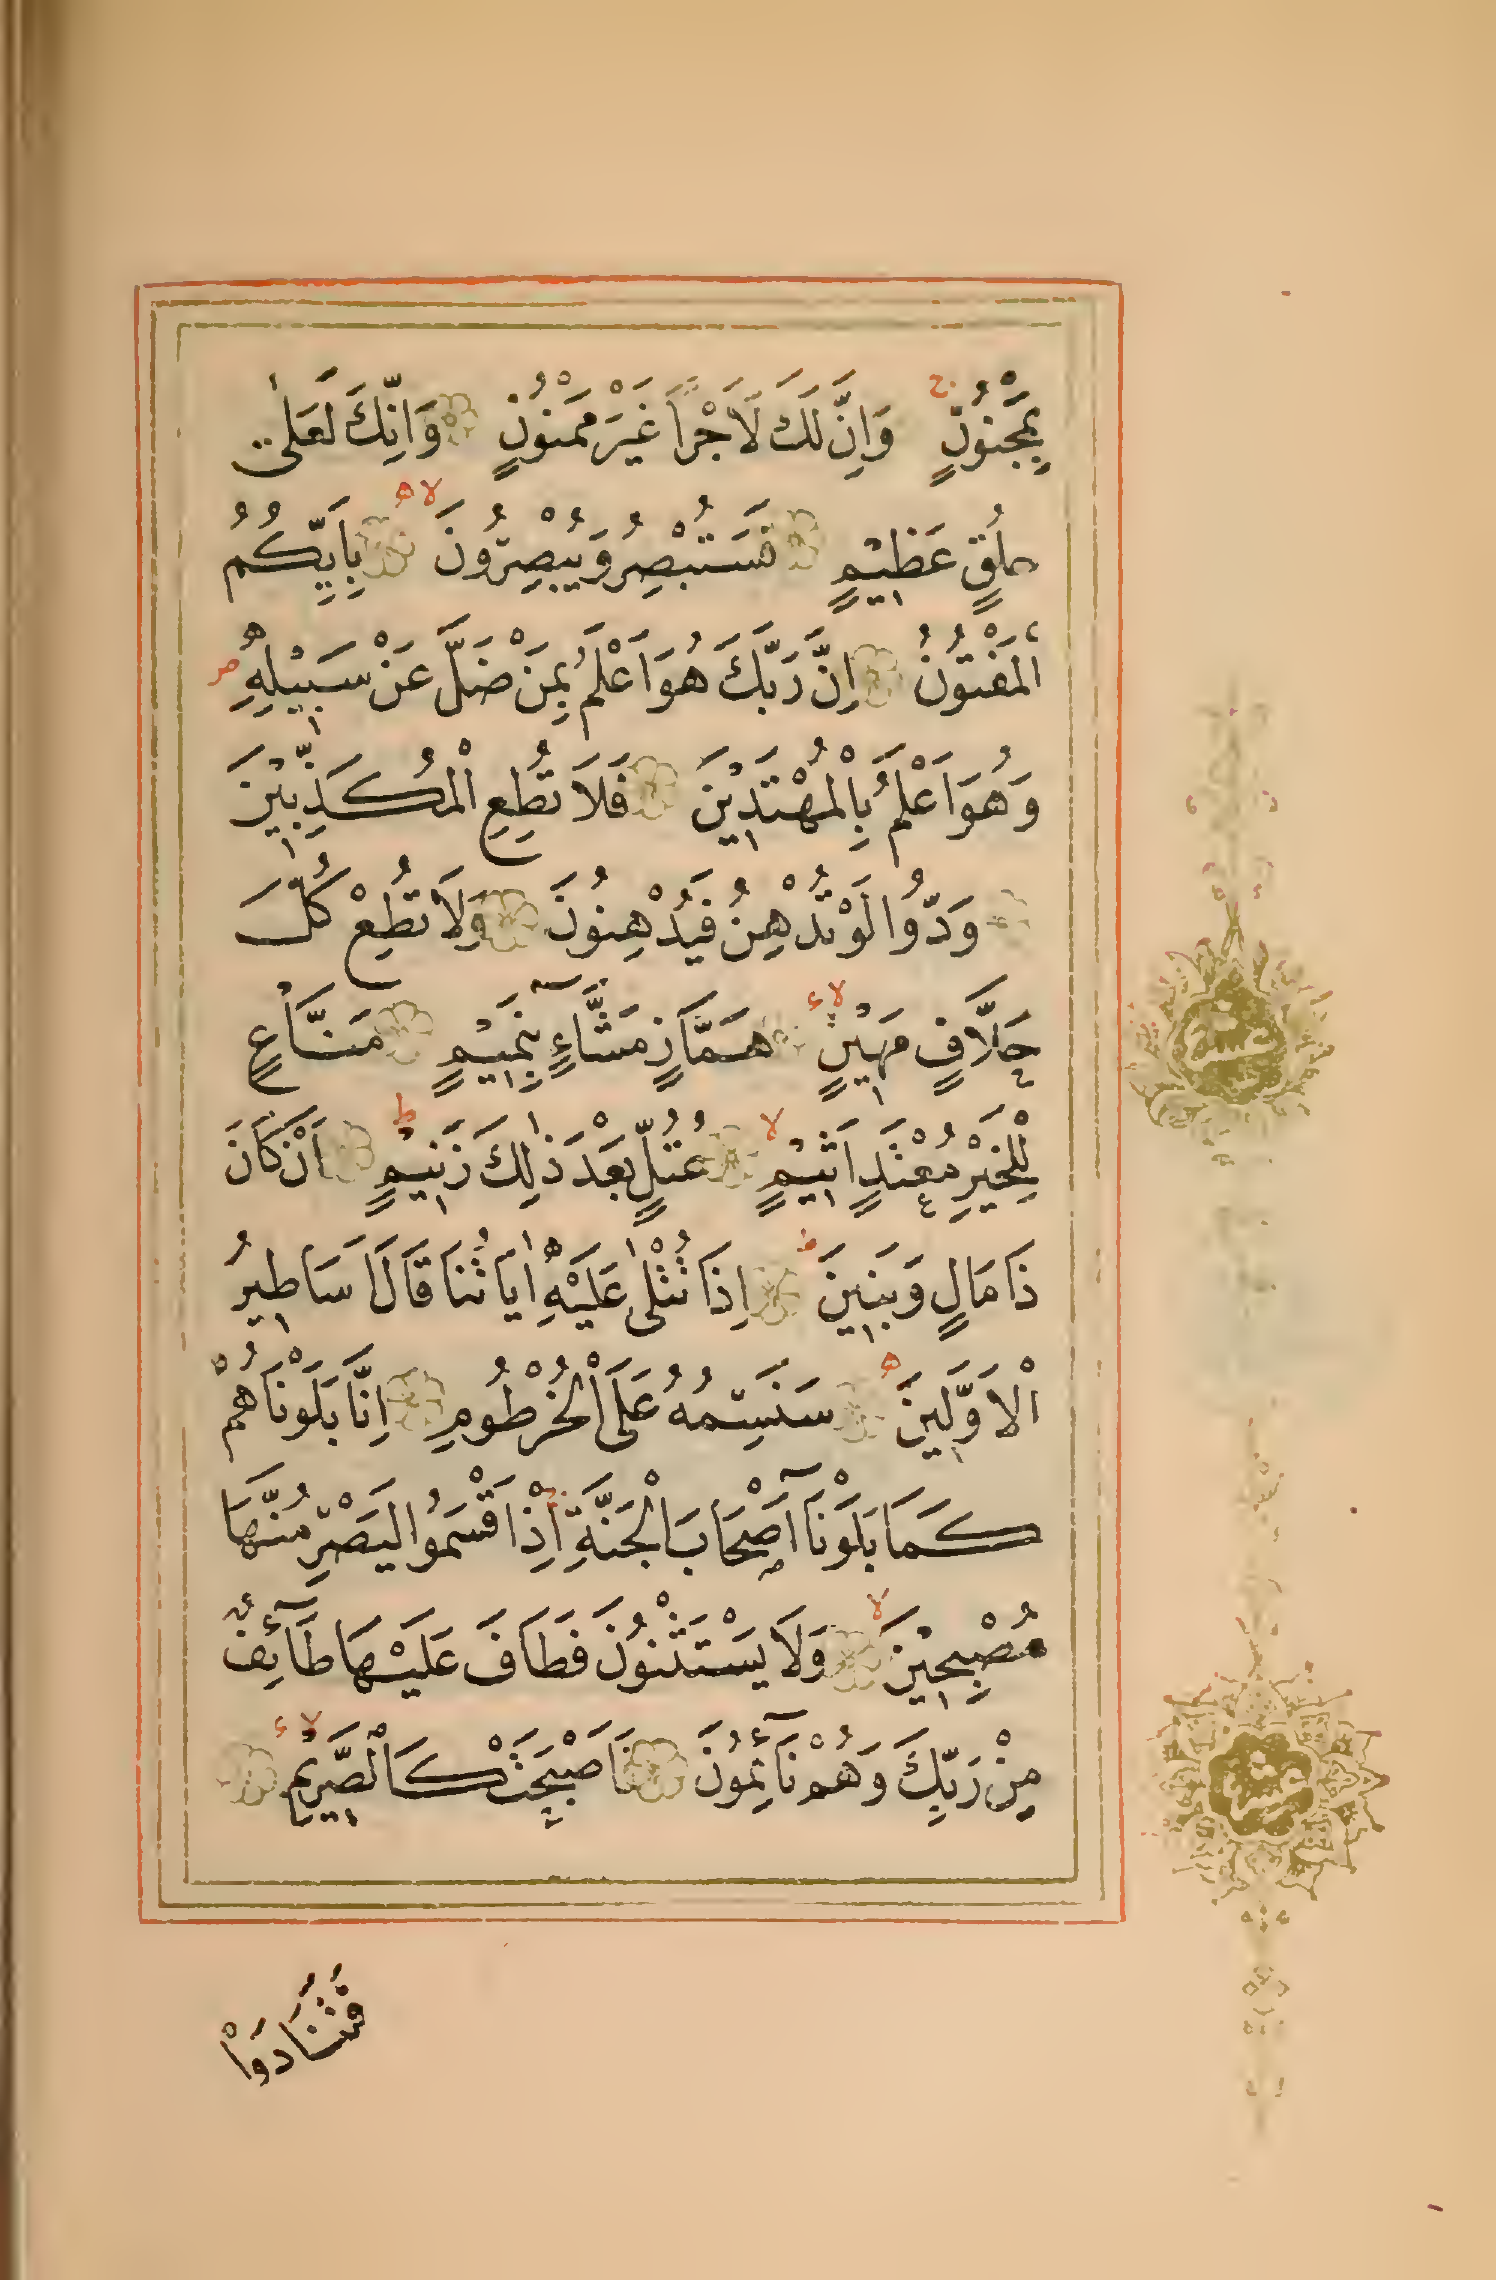 بِمَجْنُونٍ ج وَاِنَّ لَكَ لَاَجْراً غَيْرَ مَمْنُونٍ وَاِنَّكَ لَعَلٰى
خُلُقٍ عَظِيْمٍ فَسَتُبْصِرُ وَيُبْصِرُونَ لا ه بِاَيِّكُمُ
الْمَفْتُونُ اِنَّ رَبَّكَ هُوَ اَعْلَمُ بِمَنْ ضَلَّ عَنْ سَبِيْلِهٖ ص
وَهُوَ اَعْلَمُ بِالْمُهْتَدِيْنَ فَلَا تُطِعِ الْمُكَذِّبِيْنَ
وَدُّوا لَوْ تُدْهِنُ فَيُدْهِنُونَ وَلَا تُطِعْ كُلَّ
حَلَّافٍ مَهِيْنٍ لا ء هَمَّازٍ مَشَّآءٍ بِنَمِيْمٍ مَنَّاعٍ
لِلْخَيْرِ مُعْتَدٍ اَثِيْمٍ لا عُتُلٍّ بَعْدَ ذٰلِكَ زَنِيْمٍ ط اَنْ كَانَ
ذَا مَالٍ وَبَنِينَ ط اِذَا تُتْلٰى عَلَيْهِ اٰيَاتُنَا قَالَ اَسَاطِيرُ
الْاَوَّلِينَ ه سَنَسِمُهُ عَلَى الْخُرْطُومِ اِنَّا بَلَوْنَاهُمْ
كَمَا بَلَوْنَآ اَصْحَابَ الْجَنَّةِ اِذْ اَقْسَمُوا لَيَصْرِمُنَّهَا
مُصْبِحِيْنَ لا وَلَا يَسْتَثْنُونَ فَطَافَ عَلَيْهَا طَآئِفٌ
مِنْ رَبِّكَ وَهُمْ نَآئِمُونَ فَاَصْبَحَتْ كَالصَّرِيْمِ لا ء
فَتَنَادَوْا